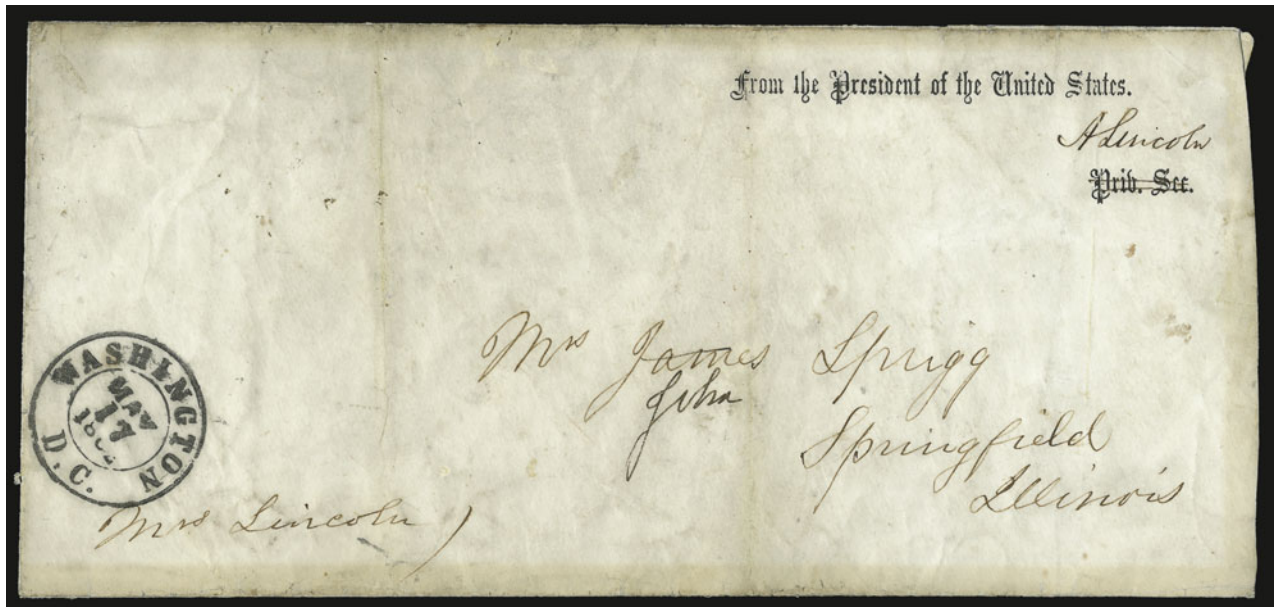 From the President of the United States.
A Lincoln
Priv. Sec.
Mrs James Sprigg
John
Springfield
Illinois
WASHINGTON
D.C.
MAY
17
Mrs Lincoln )